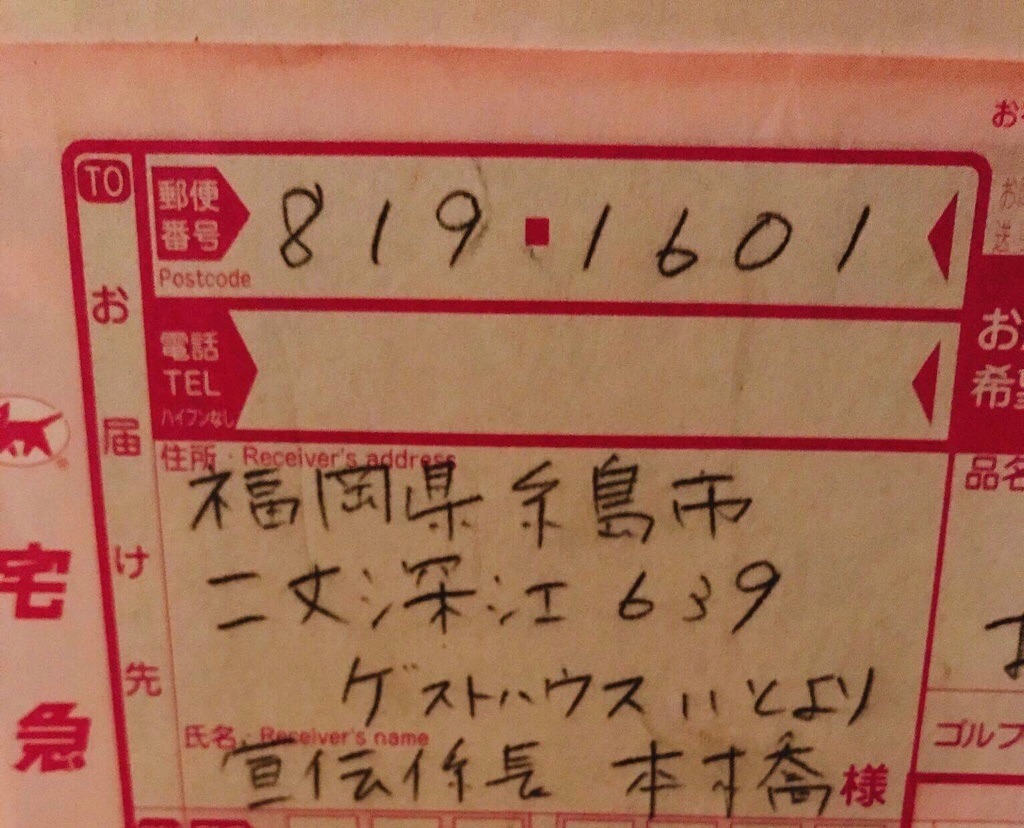 TO
お届け先
郵便番号
Postcode
819-1601
電話
TEL
ハイフンなし
住所・Receiver's address
福岡県糸島市
二丈深江639
ゲストハウスいとより
氏名・Receiver's name
宣伝係長 本橋様
宅急
品名
ゴルフ